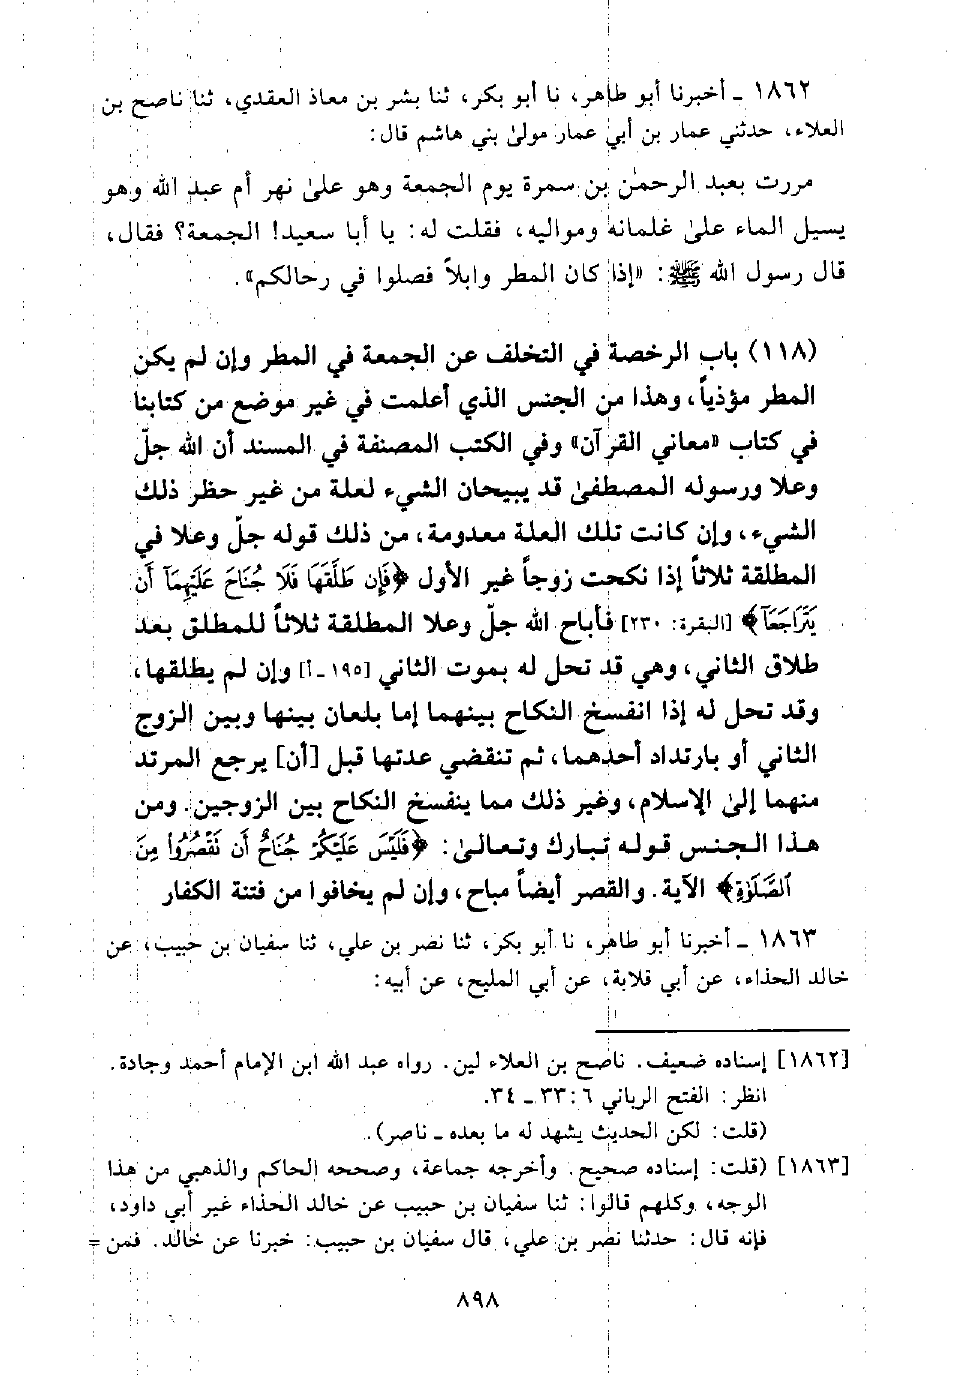 ١٨٦٢ ـ أخبرنا أبو طاهر، نا أبو بكر، ثنا بشر بن معاذ العقدي، ثنا ناصح بن
العلاء، حدثني عمار بن أبي عمار مولىٰ بني هاشم قال:
مررت بعبد الرحمٰن بن سمرة يوم الجمعة وهو علىٰ نهر أم عبد الله وهو
يسيل الماء علىٰ غلمانه ومواليه، فقلت له: يا أبا سعيد! الجمعة؟ فقال،
قال رسول الله ﷺ: «إذا كان المطر وابلاً فصلوا في رحالكم».
(١١٨) باب الرخصة في التخلف عن الجمعة في المطر وإن لم يكن
المطر مؤذياً، وهذا من الجنس الذي أعلمت في غير موضع من كتابنا
في كتاب «معاني القرآن» وفي الكتب المصنفة في المسند أن الله جلّ
وعلا ورسوله المصطفىٰ قد يبيحان الشيء لعلة من غير حظر ذلك
الشيء، وإن كانت تلك العلة معدومة، من ذلك قوله جلّ وعلا في
المطلقة ثلاثاً إذا نكحت زوجاً غير الأول ﴿فَإِن طَلَّقَهَا فَلَا جُنَاحَ عَلَيْهِمَآ أَن
يَتَرَاجَعَآ﴾ [البقرة: ٢٣٠] فأباح الله جلّ وعلا المطلقة ثلاثاً للمطلق بعد
طلاق الثاني، وهي قد تحل له بموت الثاني [١٩٥ ـ أ] وإن لم يطلقها،
وقد تحل له إذا انفسخ النكاح بينهما إما بلعان بينها وبين الزوج
الثاني أو بارتداد أحدهما، ثم تنقضي عدتها قبل [أن] يرجع المرتد
منهما إلىٰ الإسلام، وغير ذلك مما ينفسخ النكاح بين الزوجين. ومن
هذا الجنس قوله تبارك وتعالىٰ: ﴿فَلَيْسَ عَلَيْكُمْ جُنَاحٌ أَن نَقْصُرُوا مِنَ
ٱلصَّلَوٰةِ﴾ الآية. والقصر أيضاً مباح، وإن لم يخافوا من فتنة الكفار
١٨٦٣ ـ أخبرنا أبو طاهر، نا أبو بكر، ثنا نصر بن علي، ثنا سفيان بن حبيب، عن
خالد الحذاء، عن أبي قلابة، عن أبي المليح، عن أبيه:
[١٨٦٢] إسناده ضعيف. ناصح بن العلاء لين. رواه عبد الله ابن الإمام أحمد وجادة.
انظر: الفتح الرباني ٦: ٣٣ ـ ٣٤.
(قلت: لكن الحديث يشهد له ما بعده ـ ناصر).
[١٨٦٣] (قلت: إسناده صحيح. وأخرجه جماعة، وصححه الحاكم والذهبي من هذا
الوجه، وكلهم قالوا: ثنا سفيان بن حبيب عن خالد الحذاء غير أبي داود،
فإنه قال: حدثنا نصر بن علي، قال سفيان بن حبيب: خبرنا عن خالد. فمن =
٨٩٨